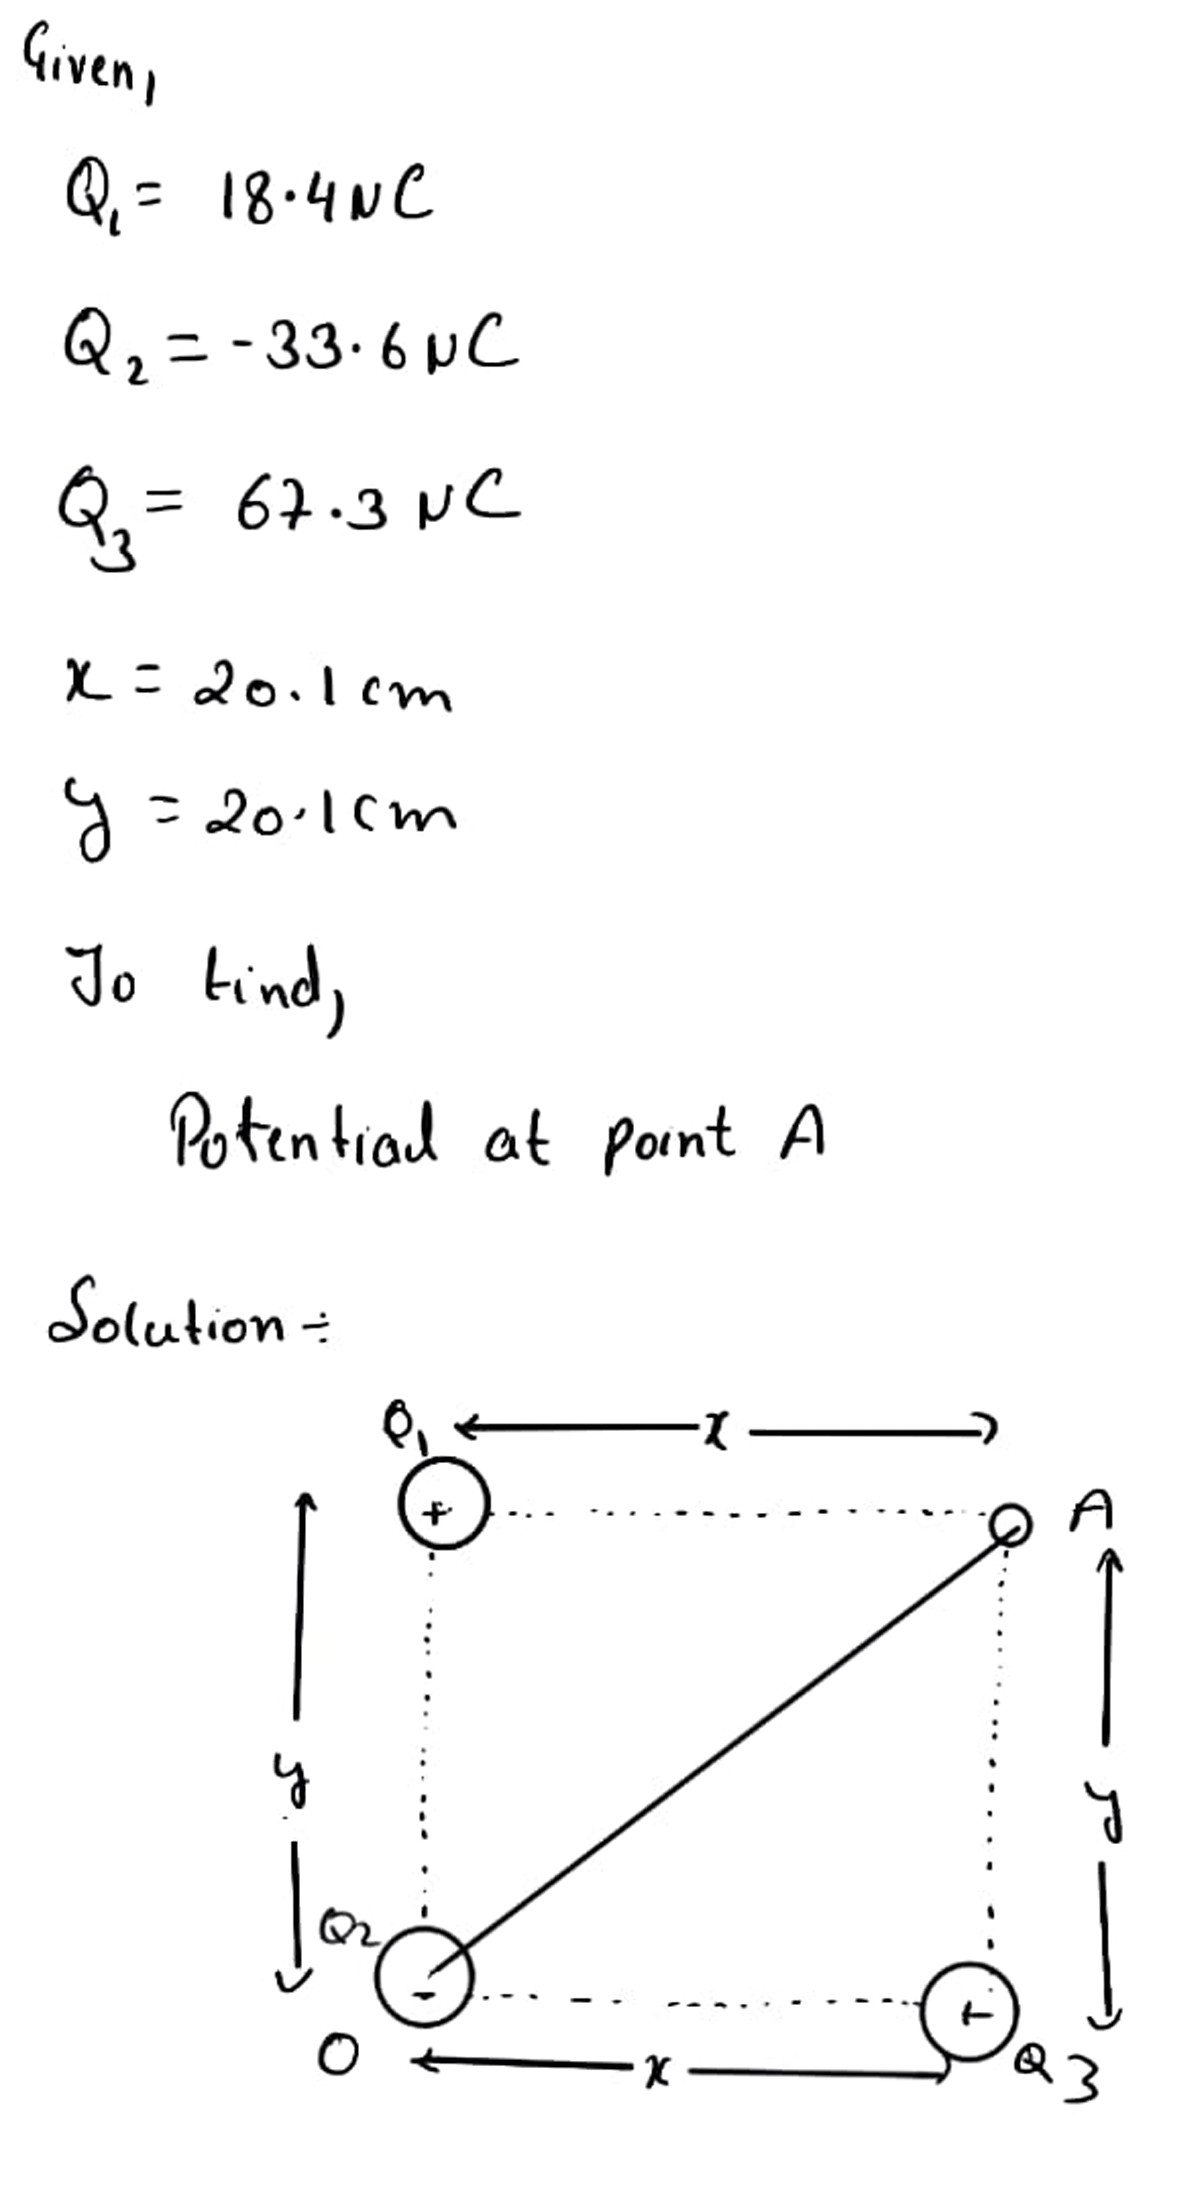 Given,
Q₁ = 18.4 NC
Q₂ = -33.6 NC
Q₃ = 67.3 NC
x = 20.1 cm
y = 20.1 cm
To find,
Potential at point A
Solution ÷
Q₁ x
+ A
y y
Q₂
- +
O x Q3